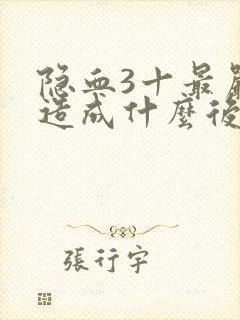 隐血3十最嚴
造成什麼後
張行宇